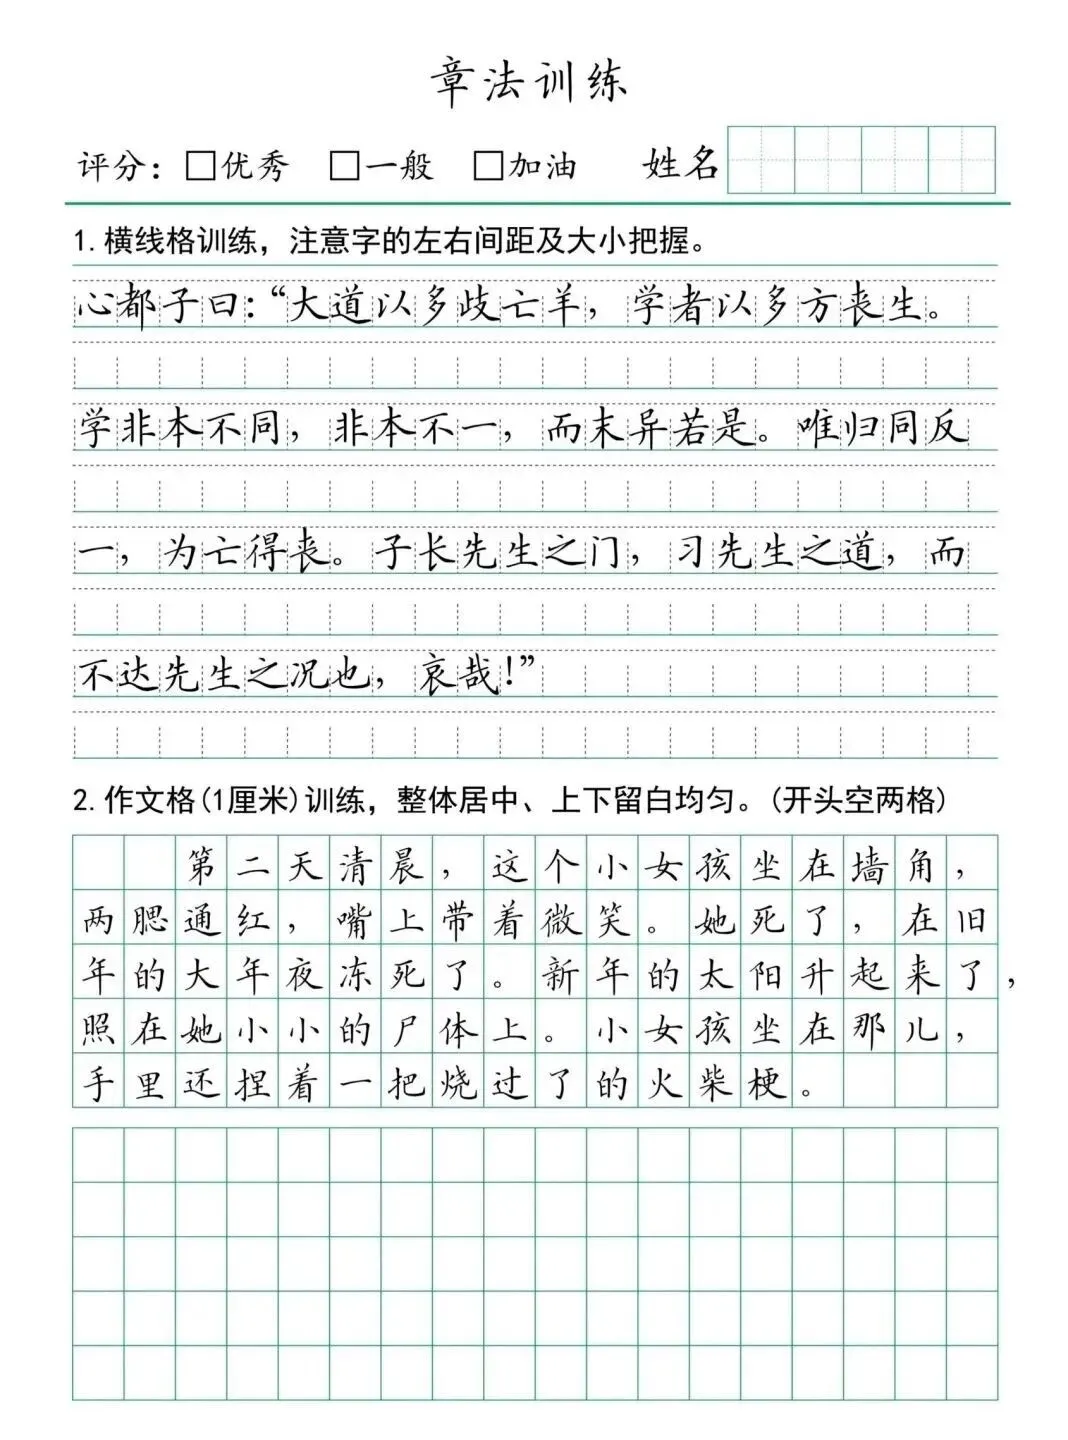 章法训练
评分：□优秀 □一般 □加油 姓名
1.横线格训练，注意字的左右间距及大小把握。
心都子曰：“大道以多歧亡羊，学者以多方丧生。
学非本不同，非本不一，而末异若是。唯归同反
一，为亡得丧。子长先生之门，习先生之道，而
不达先生之况也，哀哉！”
2.作文格(1厘米)训练，整体居中、上下留白均匀。(开头空两格)
第二天清晨，这个小女孩坐在墙角，
两腮通红，嘴上带着微笑。她死了，在旧
年的大年夜冻死了。新年的太阳升起来了，
照在她小小的尸体上。小女孩坐在那儿，
手里还捏着一把烧过了的火柴梗。